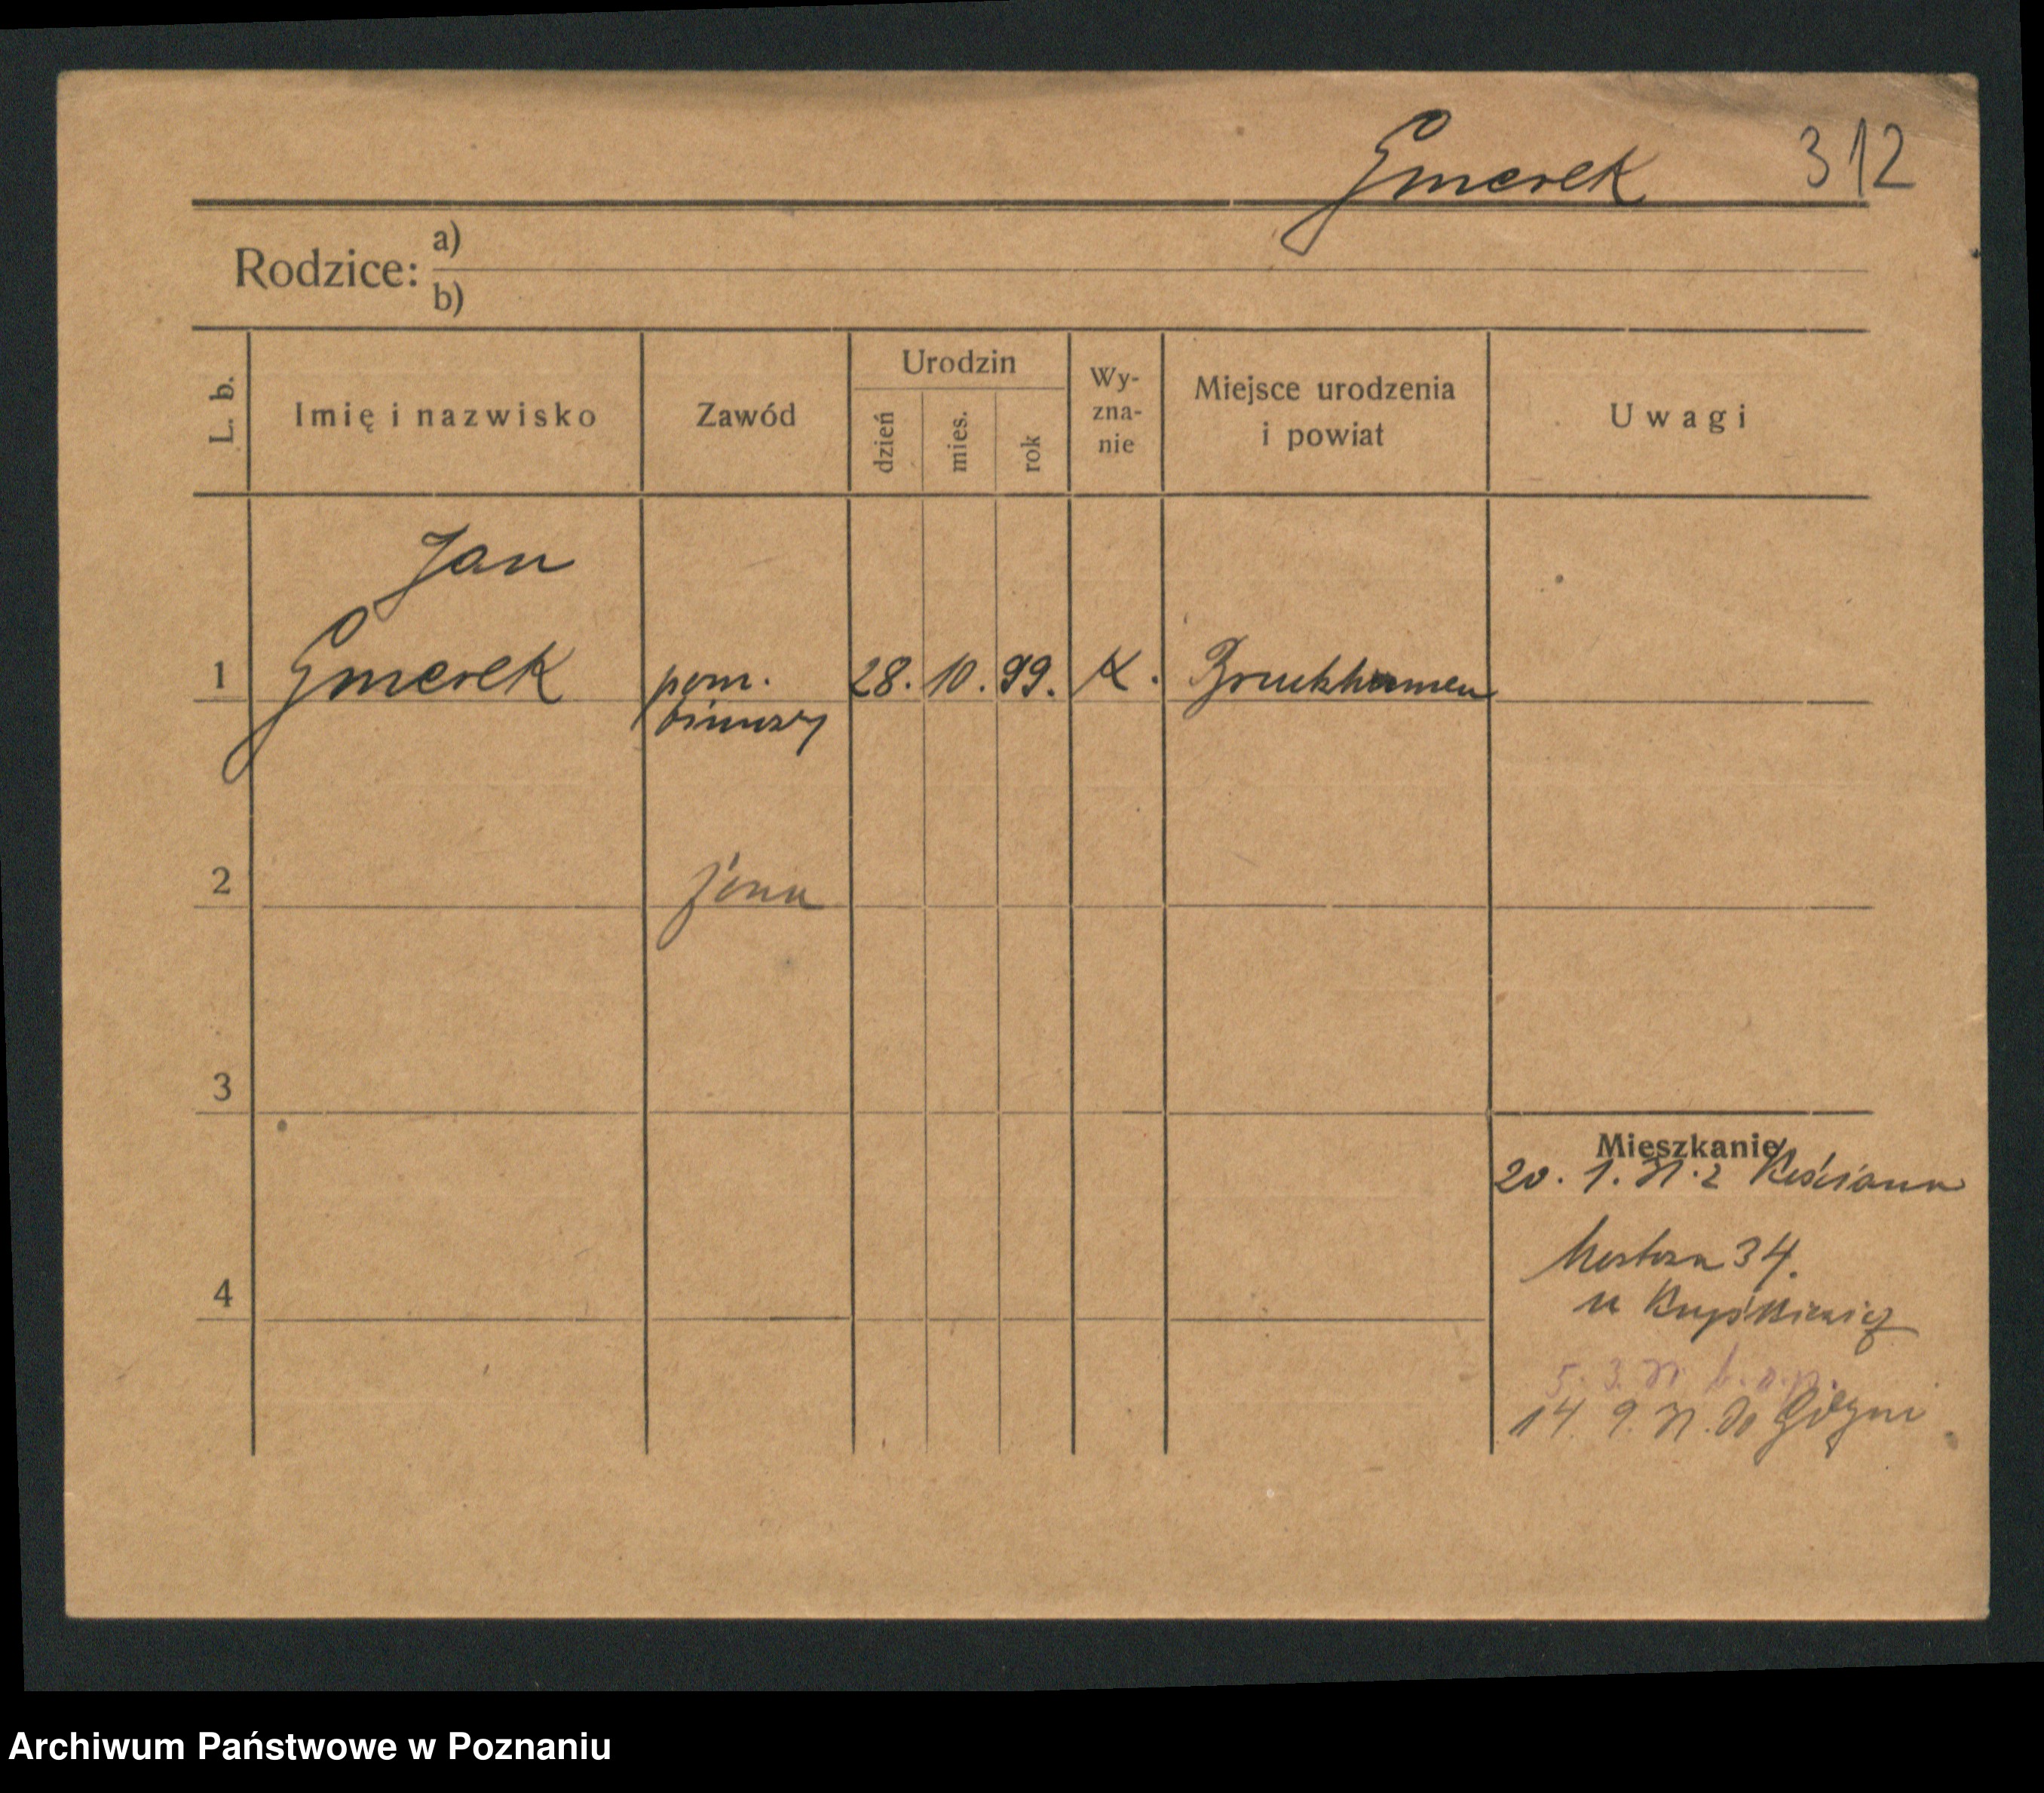 Gmerek 312
Rodzice: a)
b)
L. b.
Imię i nazwisko
Zawód
Urodzin
dzień
mies.
rok
Wy-
zna-
nie
Miejsce urodzenia
i powiat
Uwagi
Jan
1 Gmerek pom. 28. 10. 99. K. Bruckhausen
biurowy
2 żona
3
Mieszkanie
20. 1. 31. z Kościana
34.
4
u
5. 3. 31
14. 9. 31. do Gdyni
Archiwum Państwowe w Poznaniu